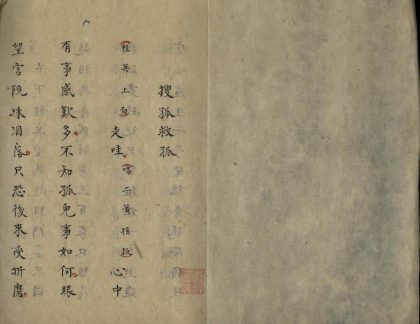 搜孤救孤
上白走哇二黃搖板心中
有事感歎多不知孤兒事如何眼
望宮院珠泪落只恐後來受折磨